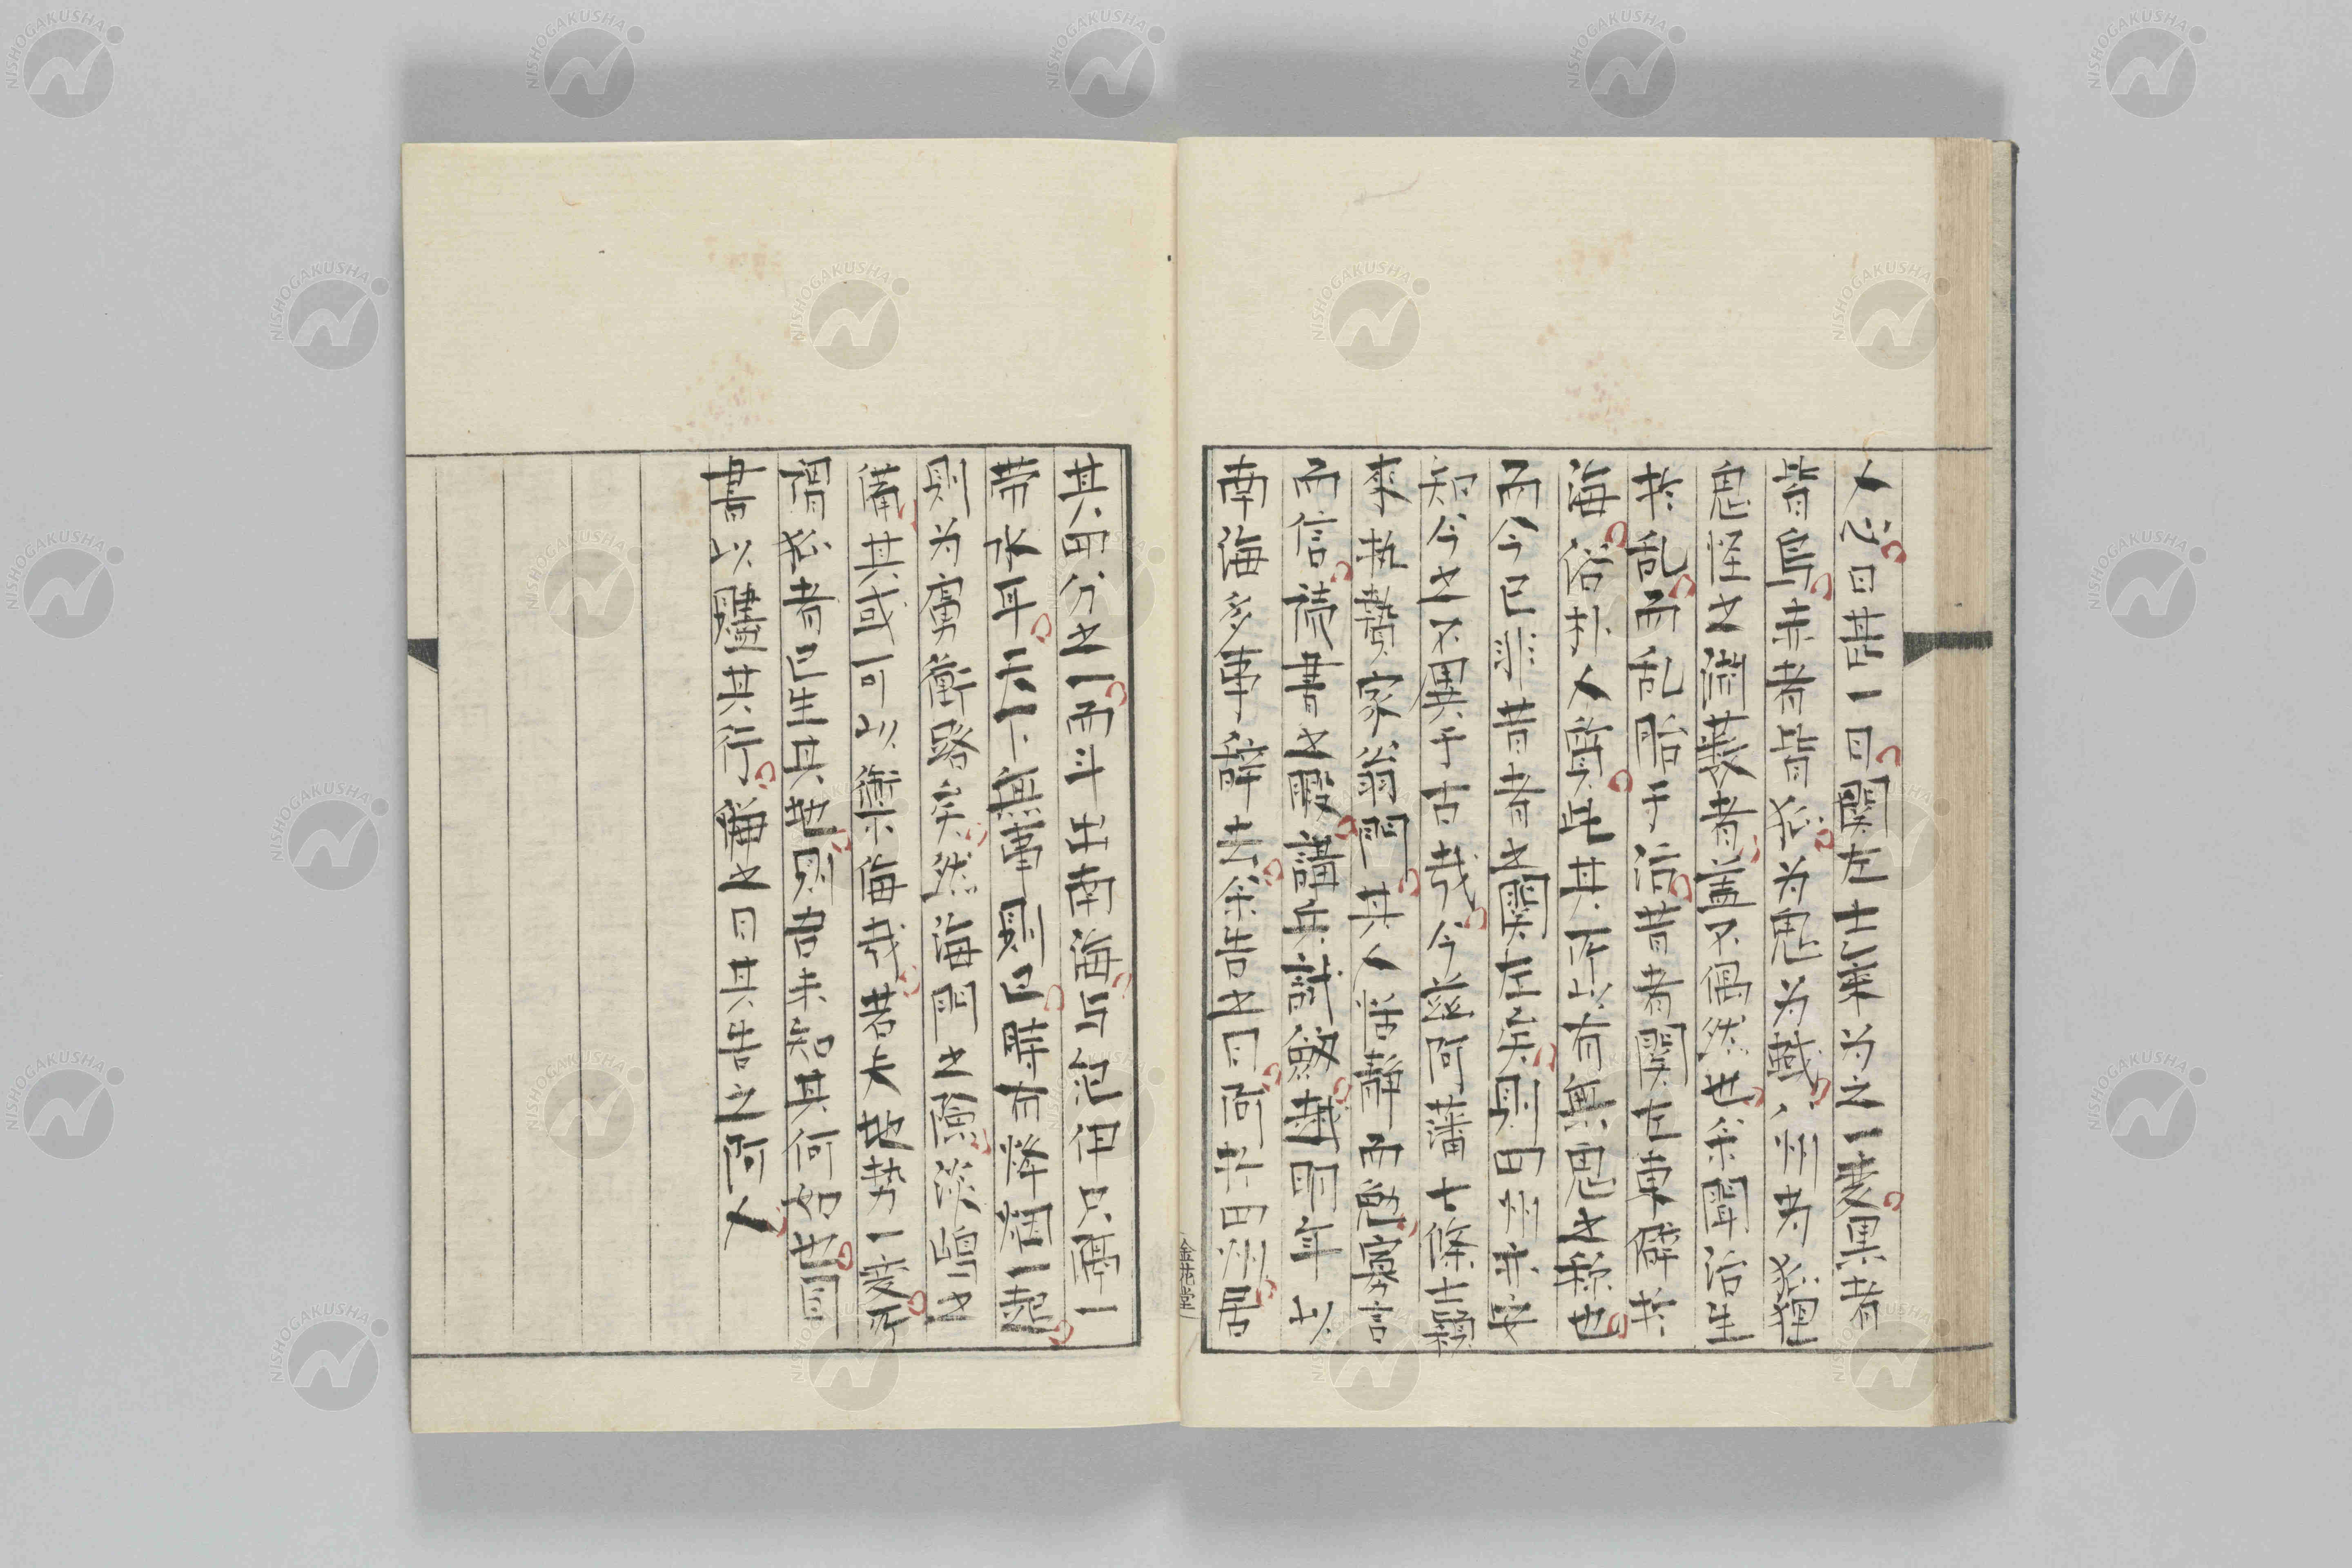 人必曰甚一日關左士葉為之一変異者
皆烏赤者皆狐為鬼為蜮八州者狐狸
鬼怪之淵叢者蓋不偶然也余聞治生
於乱而乱胎于治昔者關左東陲於
海俗朴人勇兵其所以有無鬼之称也
而今已非昔者之關左矣則四州未必
知今之不異于古哉今茲阿藩士條士穎
来執贄家翁門其人恬静而勉寡言
而信讀書之暇講兵討劔越明年以
南海多事辞去余告之曰阿於四州居
其四分之一而斗出南海与紀伊只隔一
帯水耳天下無事則已時有緩急一起
則為賓衝路矣然海門之險淡嶋之
備其或可以衝不侮哉若夫地势一変所
謂狐者已生其地則吾未知其何如也因
書以贐其行蒲之曰其告之阿人
金花堂
NISHOGAKUSHA